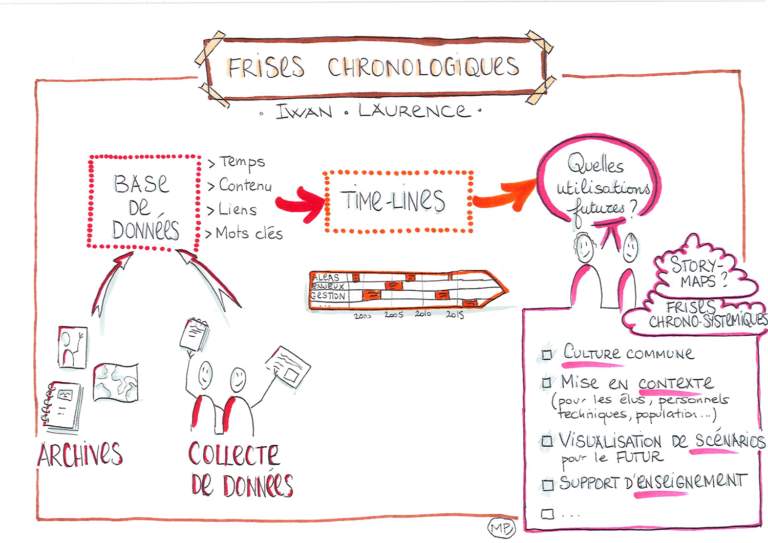 FRISES CHRONOLOGIQUES
• IWAN • LAURENCE •
BASE
DE
DONNÉES
> Temps
> Contenu
> Liens
> Mots clés
TIME-LINES
Quelles
utilisations
futures ?
STORY-
MAPS ?
FRISES
CHRONO-SISTEMIQUES
ALEAS
ENJEUX
GESTION
...
2000 2005 2010 2015
ARCHIVES
COLLECTE
DE DONNÉES
CULTURE COMMUNE
MISE EN CONTEXTE
(pour les élus, personnels
techniques, population...)
VISUALISATION DE SCÉNARIOS
pour le FUTUR
SUPPORT D'ENSEIGNEMENT
...
MP